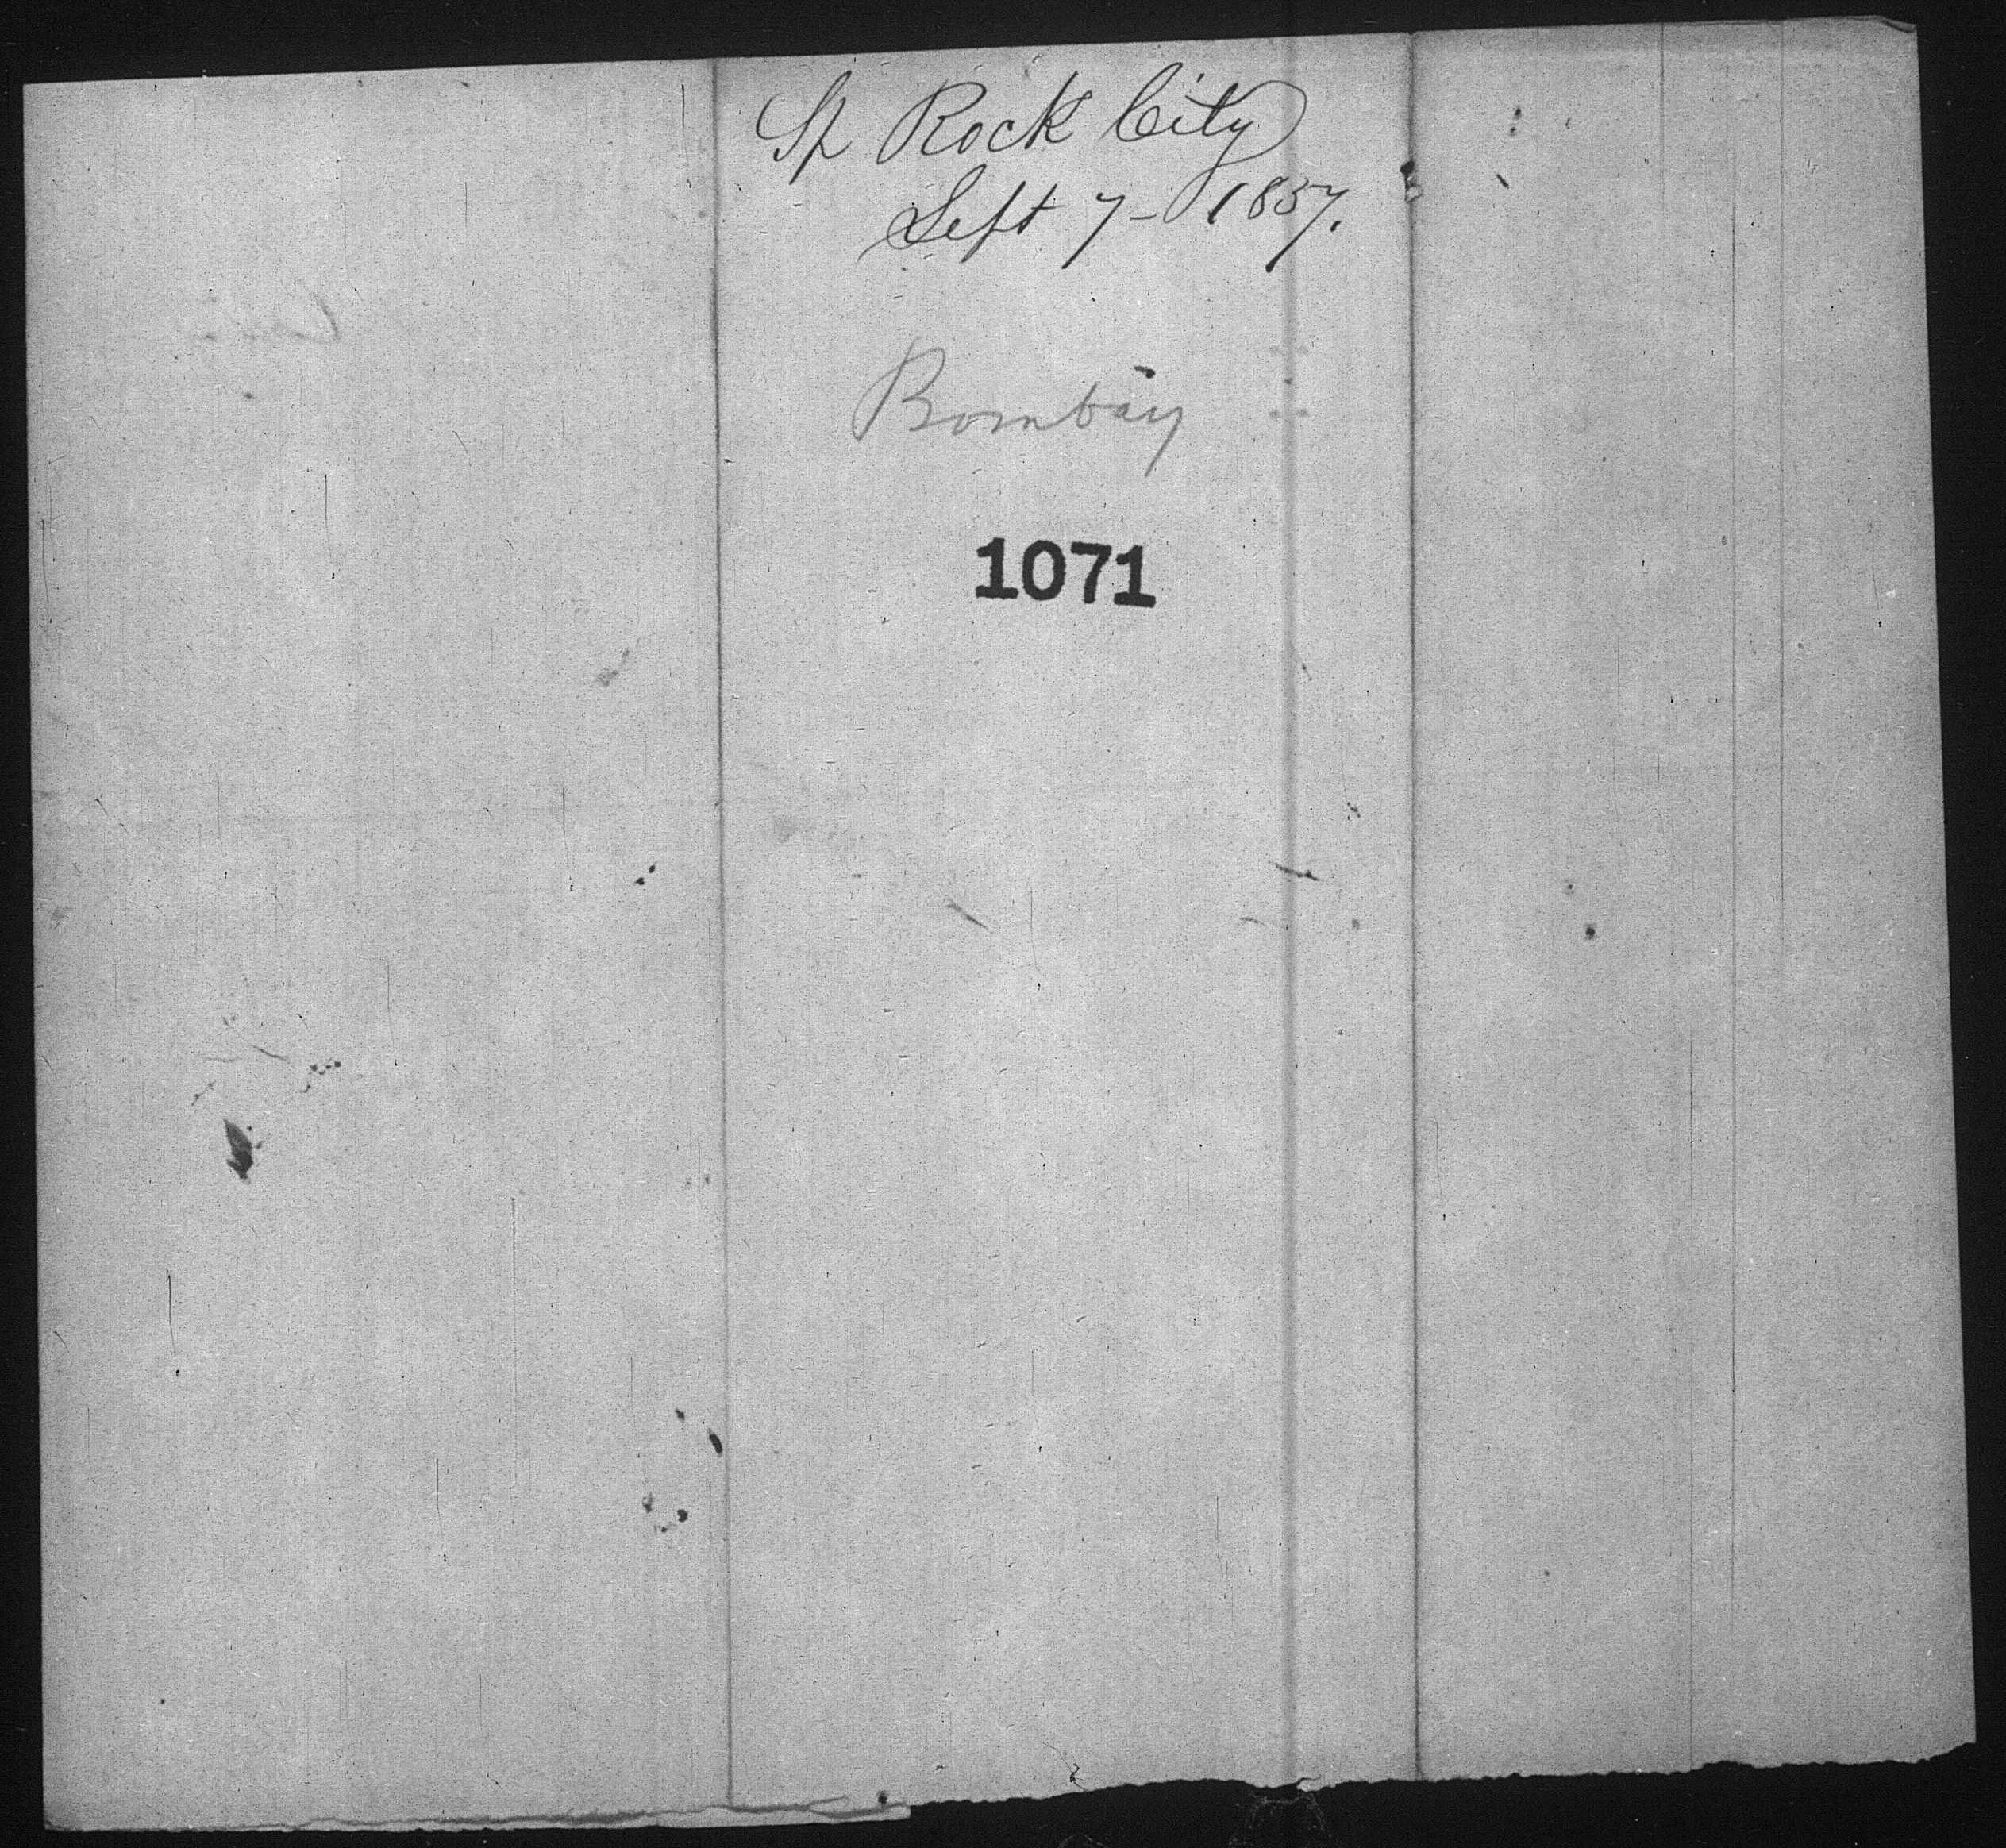 Sp Rock City
Sept 7 - 1857.
Bombay
1071